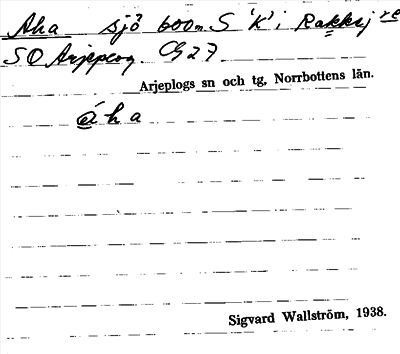 Aha sjö 600m S 'K' i Rakksjre
SO Arjeplog. C 27.
Arjeplogs sn och tg. Norrbottens län.
áha
Sigvard Wallström, 1938.